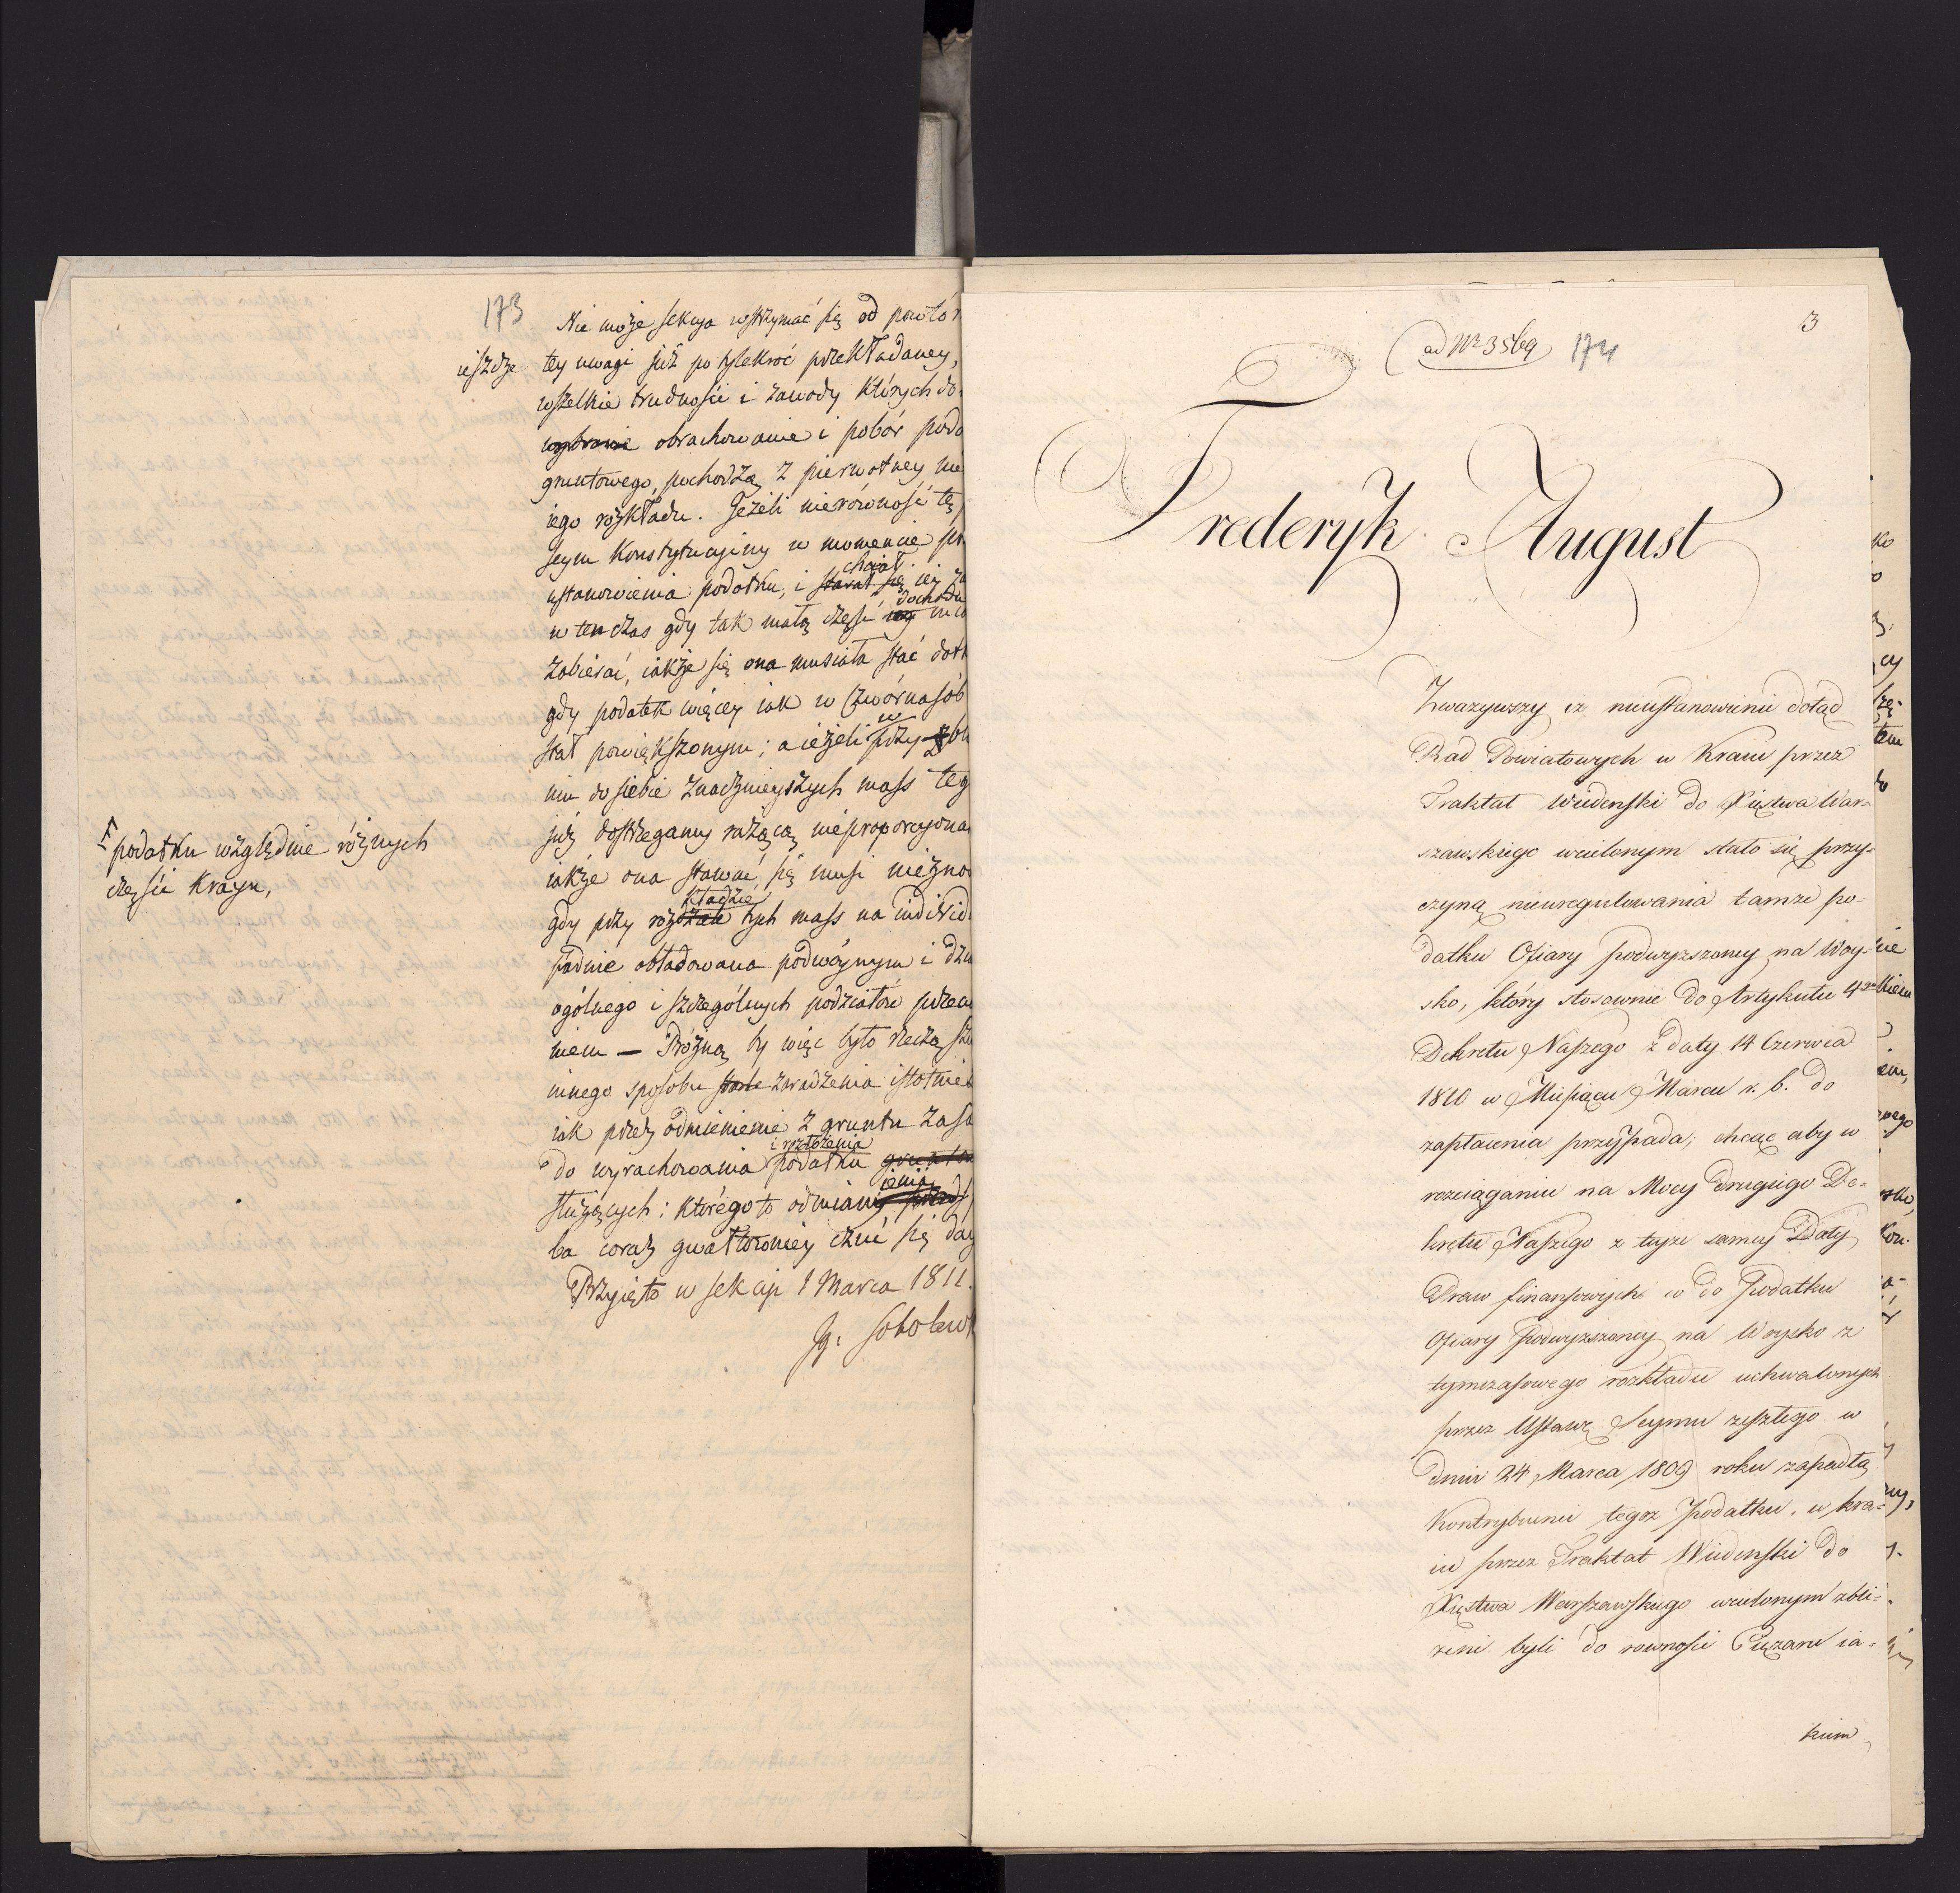 173
Nie może sekcya wstrzymać się od powtór
ieszcze
tey uwagi już po tylekroć przekładaney,
wszelkie trudności i zawody których do
obrachowanie i pobór poda
gruntowego, pochodzą z pierwotney nie
iego rozkładu. Jeżeli nierówność tę
seym Konstytucyiny w momencie pr
chciał
ustanowienia podatku, i starał się iey za
dochodu
w ten czas gdy tak małą część mia
zabierać, iakże się ona musiała stać dot
gdy podatek więcey iak w czwórnasób
stał powiększonym; a ieżeli przy zbli
niu do siebie znacznieyszych mass teg
F podatku względnie różnych
części Kraju,
już dostrzegamy rażącą nieproporcyona
iakże ona stawać się musi nieźno
kładzie
gdy przy tych mass na individ
padnie obładowana podwóynym i
ogólnego i szczególnych podziałów
niem — Próżną by więc było rzeczą szu
innego sposobu zaradzenia istotnie
iak przez odmienienie z gruntu zasa
i rozłożenia
do wyrachowania podatku grunto
ienia
służących: którego to odmiany
ba coraz gwałtowniey czuć się day
Przyięto w sekcyi 1 Marca 1811.
Sobolews
3
ad Nr 3569 174
Frederyk August
Zważywszy iż nieustanowienie dotąd
Rad Powiatowych w Kraiu przez
Traktat Wiedeński do Xięstwa War=
szawskiego wcielonym stało się przy=
czyną nieuregulowania tamże po=
datku Ofiary podwyższoney na Woy=
sko, który stosownie do Artykułu 4go
Dekretu Naszego z daty 14 Czerwca
1810 w Miesiącu Marcu r. b. do
zapłacenia przypada; chcąc aby w
rozciąganiu na Mocy drugiego De=
kretu Naszego z teyże samey Daty
Praw finansowych co do Podatku
Ofiary Podwyższoney na Woysko z
tymczasowego rozkładu uchwalonych
przez Ustawę Seymu zeszłego w
dniu 24 Marca 1809 roku zapadłą
Kontrybuenci tegoż Podatku w kra=
iu przez Traktat Wiedeński do
Xięstwa Warszawskiego wcielonym zbli=
żeni byli do rowności Ciężaru ia=
kiem